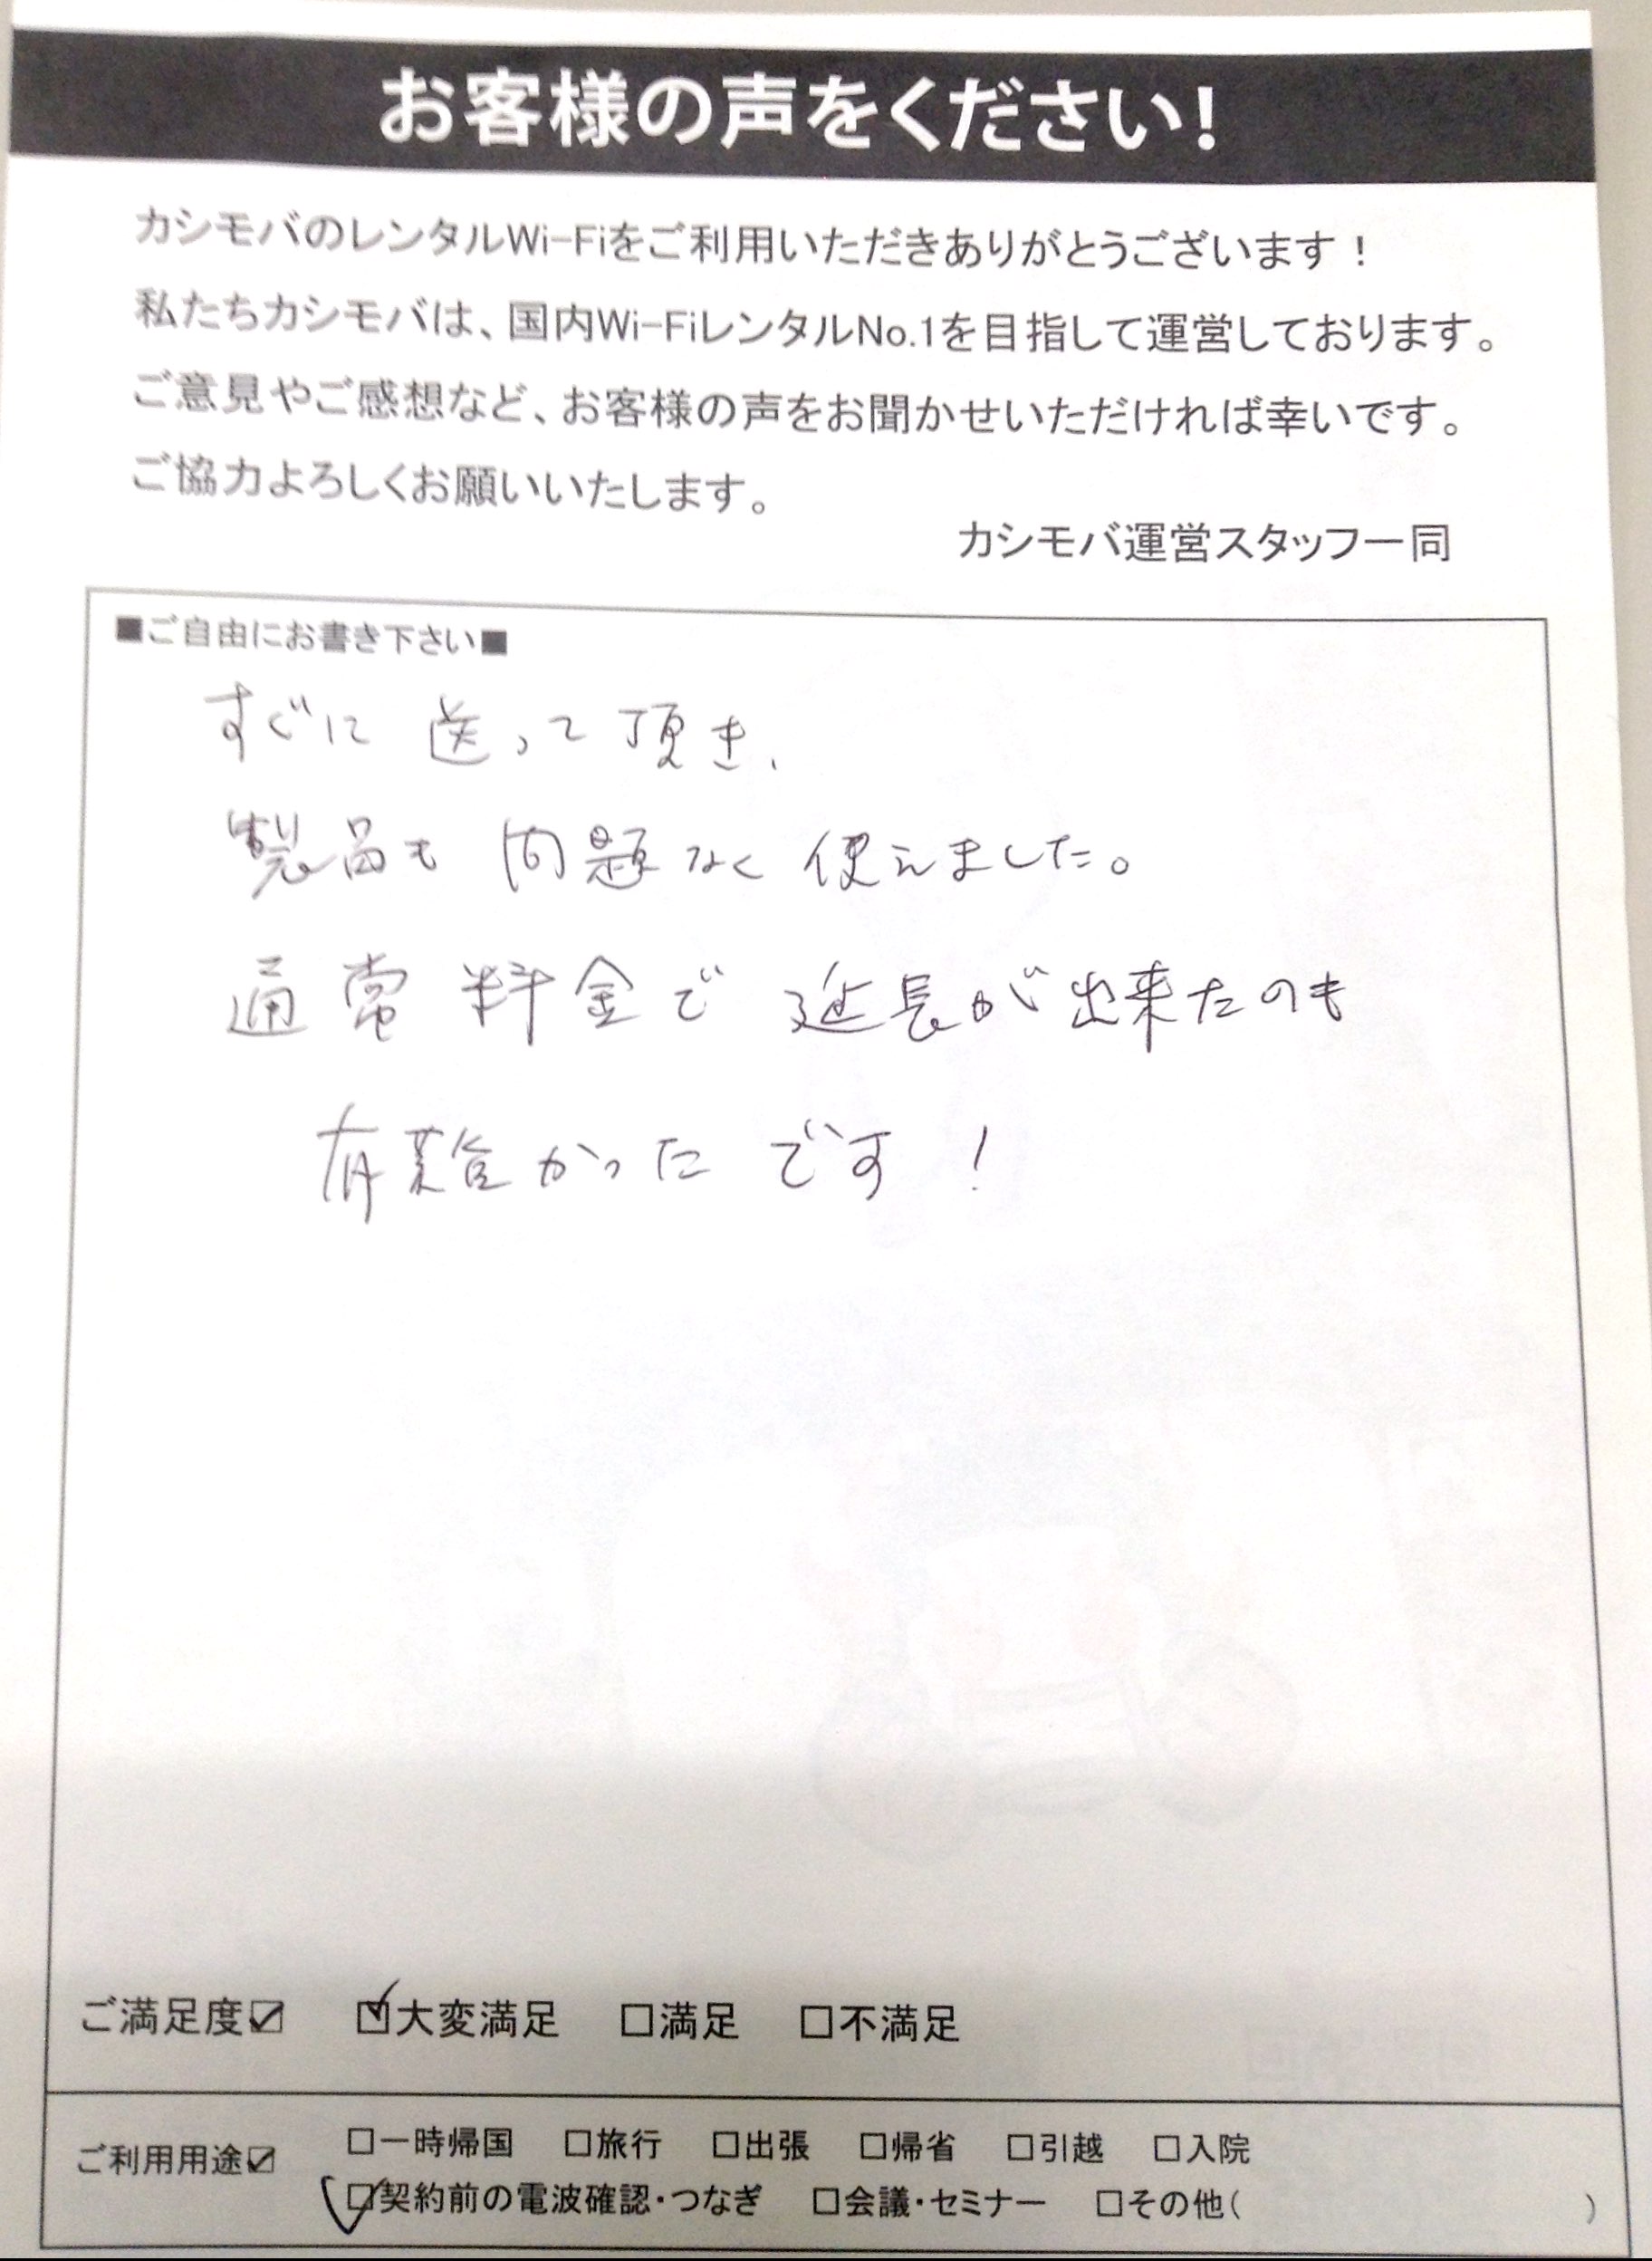 お客様の声をください!
カシモバのレンタルWi-Fiをご利用いただきありがとうございます！
私たちカシモバは、国内Wi-FiレンタルNo.1を目指して運営しております。
ご意見やご感想など、お客様の声をお聞かせいただければ幸いです。
ご協力よろしくお願いいたします。
カシモバ運営スタッフ一同
■ご自由にお書き下さい■
すぐに送って頂き、
製品も問題なく使えました。
通常料金で延長が出来たのも
有難かったです！
ご満足度☑ ☑大変満足 □満足 □不満足
ご利用用途☑ □一時帰国 □旅行 □出張 □帰省 □引越 □入院
☑契約前の電波確認・つなぎ □会議・セミナー □その他( )